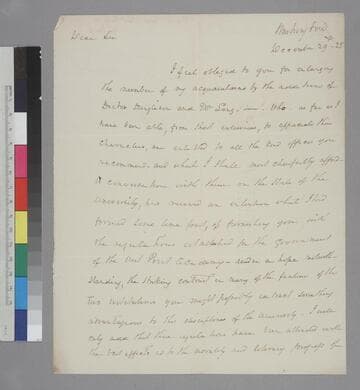 Dear Sir
December 29th 25
I feel obliged to you for enlarging
the number of my acquaintance by the addition of
Doctor and Mr Long. — Who as far as I
have been able, from short interviews, to appreciate their
characters, are entitled to all the kind offices you
recommend and which I shall most cheerfully afford
A conversation with them on the State of the
University, has revived an intention which I had
formed some time past, of furnishing you with
the regulations established for the government
of the West Point Academy — and in hope notwith-
standing, the striking contrast in many of the features of the
two institutions you might possibly extract something
advantageous to the discipline of the University. I will
only add that these regulations have been attended with
the best effects as to the morality and literary progress of